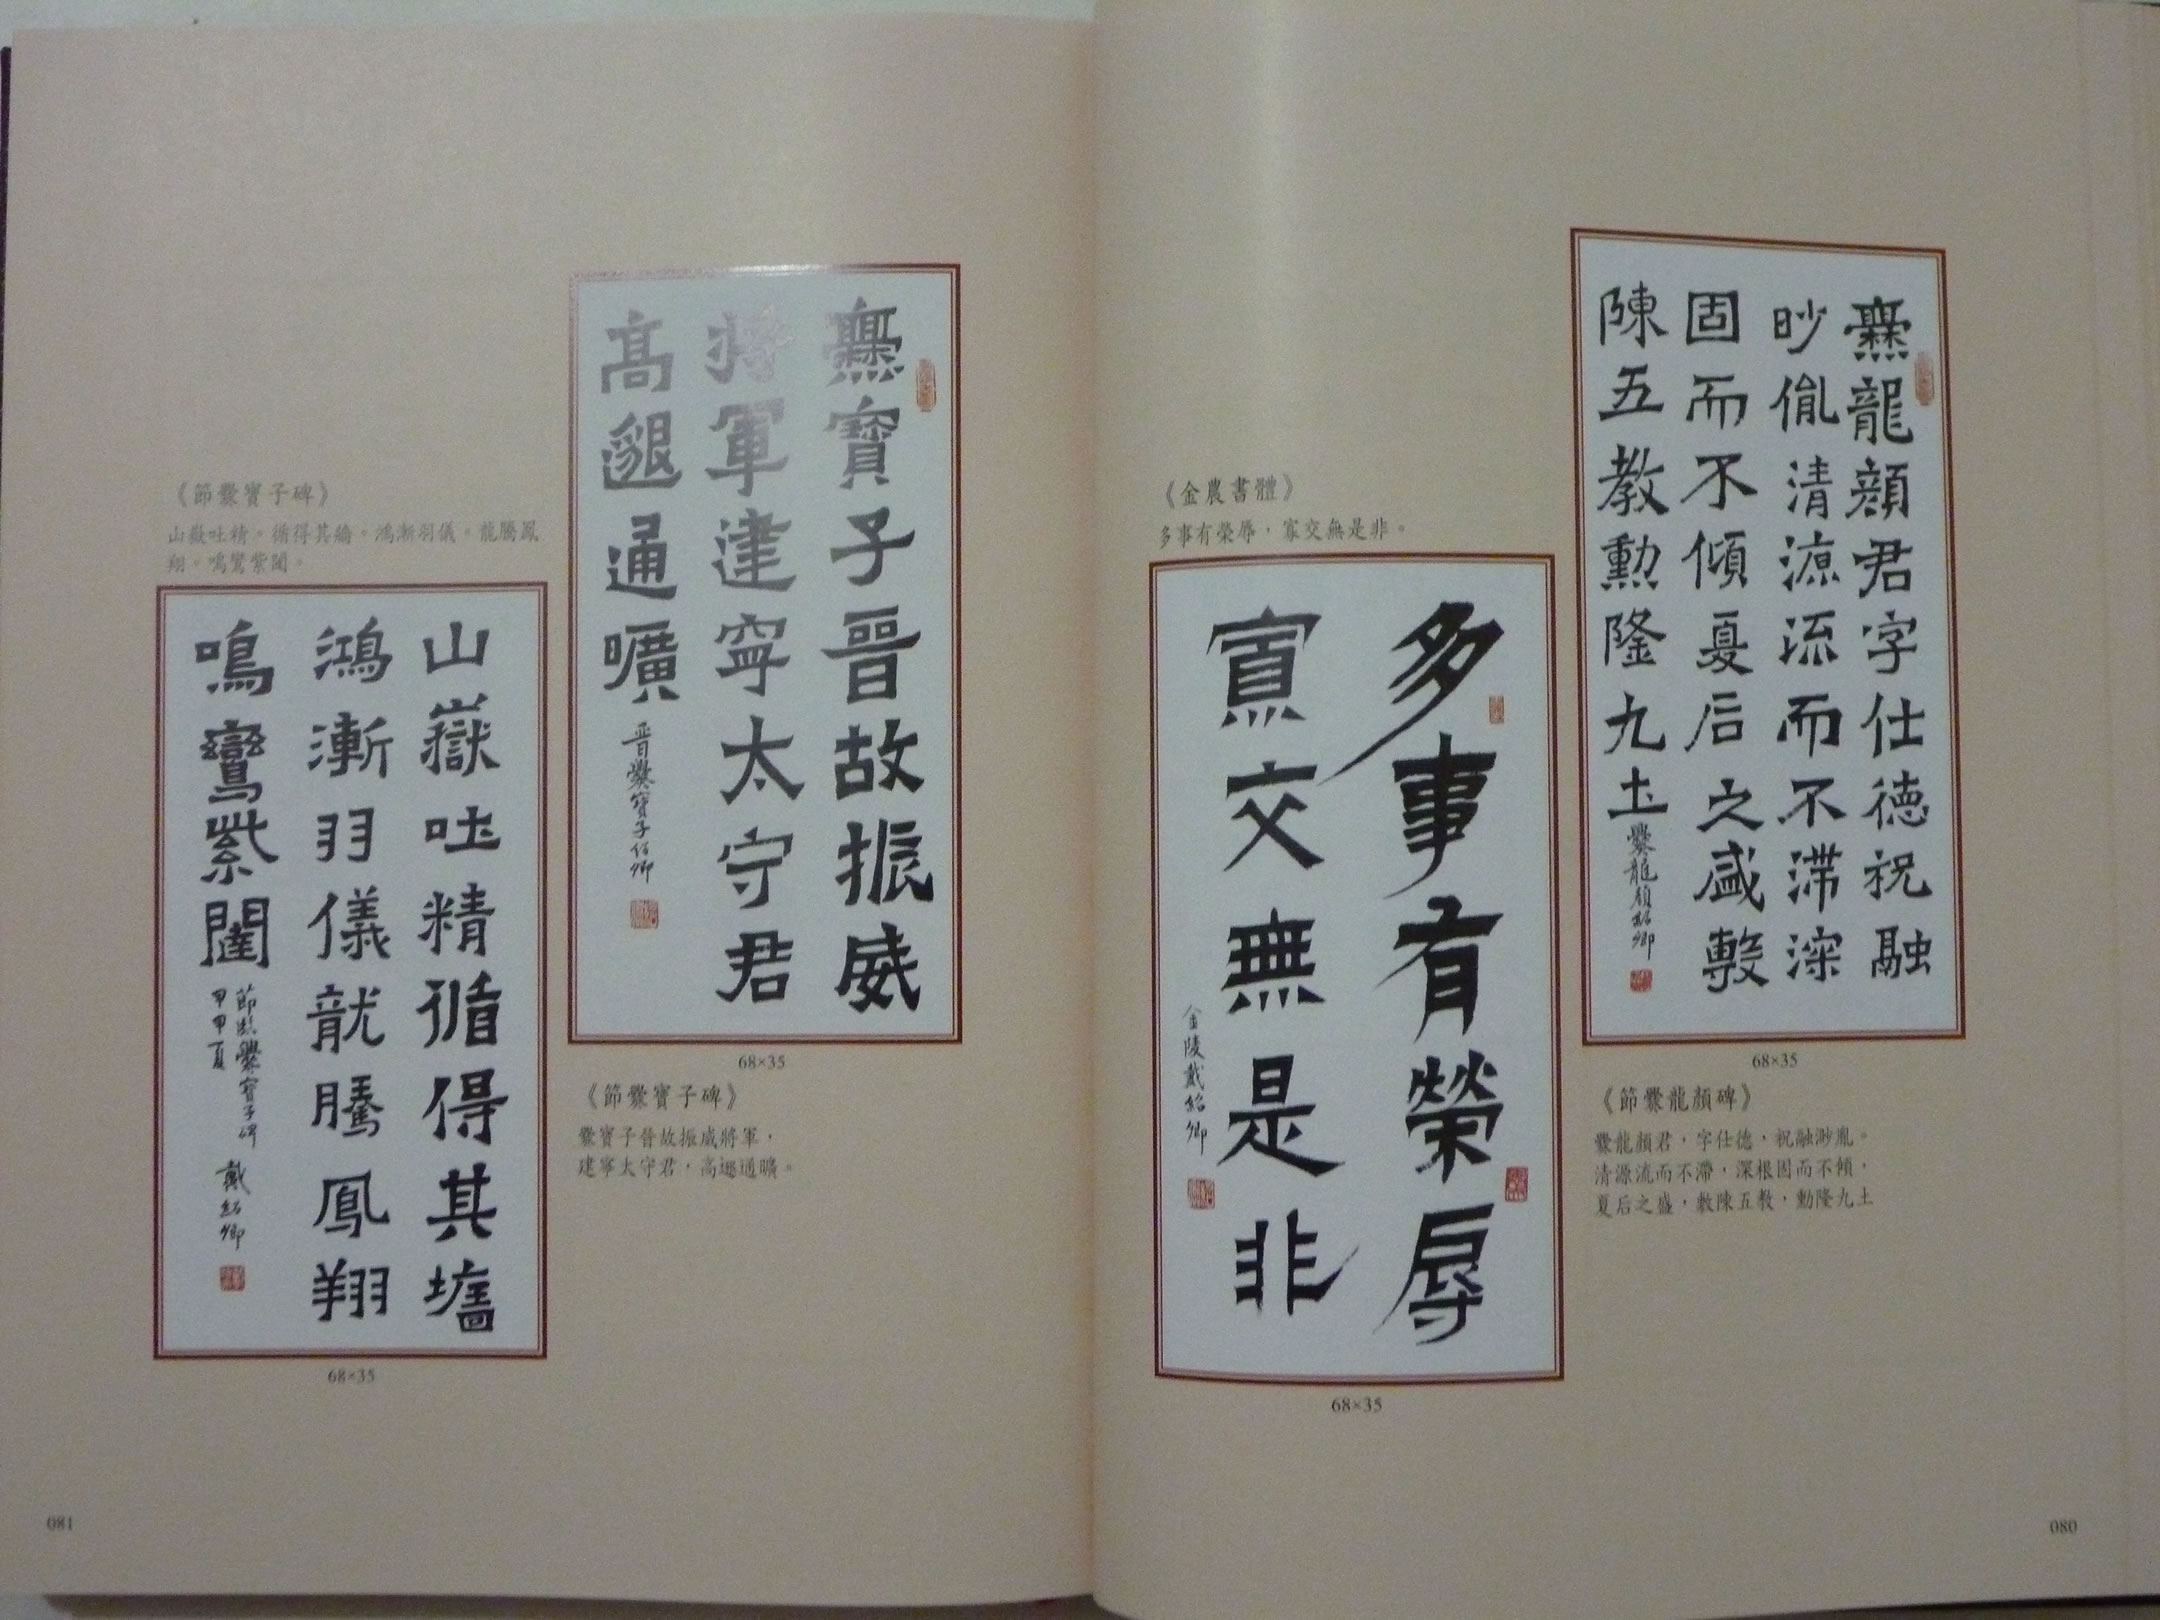 爨龍顏君字仕德祝融
眇胤清源流而不滯深
固而不傾夏后之盛敷
陳五教勳隆九土
爨龍顏紹卿
68×35
《節爨龍顏碑》
爨龍顏君，字仕德，祝融渺胤。
清源流而不滯，深根固而不傾，
夏后之盛，敷陳五教，勳隆九土
《金農書體》
多事有榮辱，寡交無是非。
多事有榮辱
寡交無是非
金陵戴紹卿
68×35
080
爨寶子晉故振威
將軍建寧太守君
高邈通曠
晉爨寶子紹卿
68×35
《節爨寶子碑》
爨寶子晉故振威將軍，
建寧太守君，高邈通曠。
《節爨寶子碑》
山嶽吐精。循得其牆。鴻漸羽儀。龍騰鳳
翔。鳴鸞紫闥。
山嶽吐精循得其墻
鴻漸羽儀龍騰鳳翔
鳴鸞紫闥
節臨爨寶子碑
甲申夏 戴紹卿
68×35
081